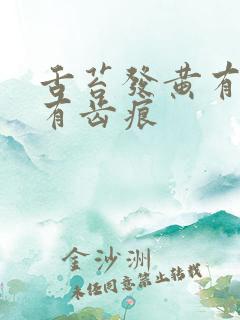 舌苔發黄有
有齿痕
金沙洲
未经同意禁止转载